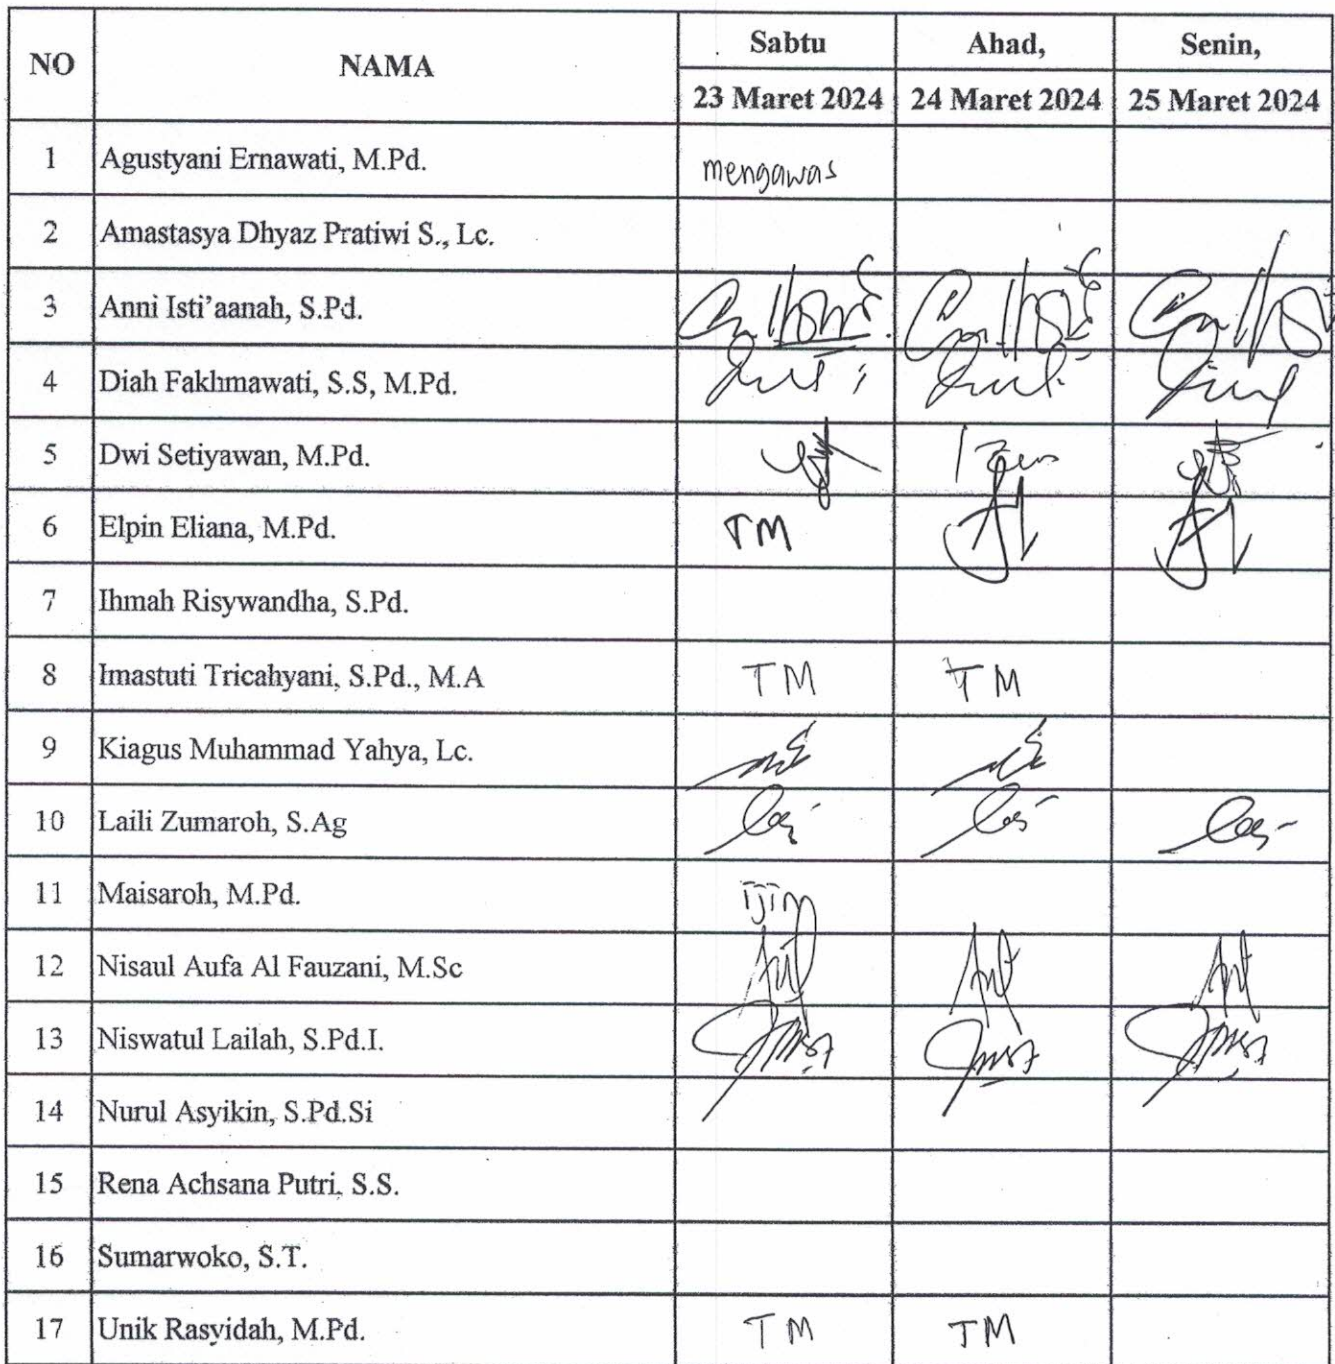 NO NAMA Sabtu Ahad, Senin,
23 Maret 2024 24 Maret 2024 25 Maret 2024
1 Agustyani Ernawati, M.Pd. mengawas
2 Amastasya Dhyaz Pratiwi S., Lc.
3 Anni Isti'aanah, S.Pd.
4 Diah Fakhmawati, S.S, M.Pd.
5 Dwi Setiyawan, M.Pd.
6 Elpin Eliana, M.Pd. TM
7 Ihmah Risywandha, S.Pd.
8 Imastuti Tricahyani, S.Pd., M.A TM TM
9 Kiagus Muhammad Yahya, Lc.
10 Laili Zumaroh, S.Ag
11 Maisaroh, M.Pd. ijin
12 Nisaul Aufa Al Fauzani, M.Sc
13 Niswatul Lailah, S.Pd.I.
14 Nurul Asyikin, S.Pd.Si
15 Rena Achsana Putri, S.S.
16 Sumarwoko, S.T.
17 Unik Rasyidah, M.Pd. TM TM